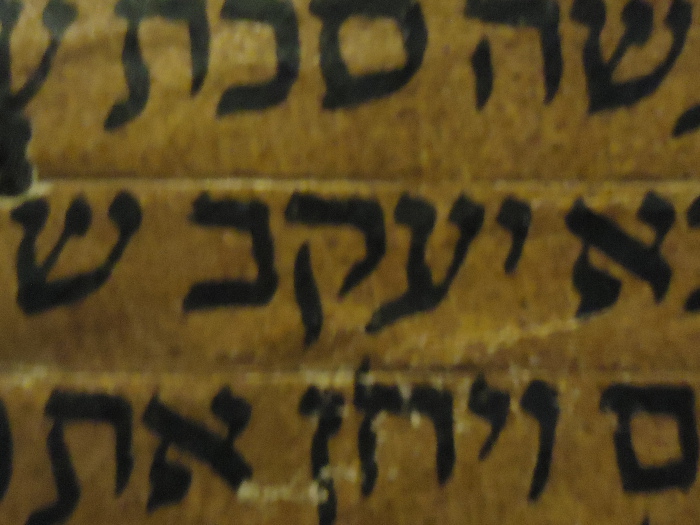 שה סכת ע
א יעקב ש
ם ויחן את